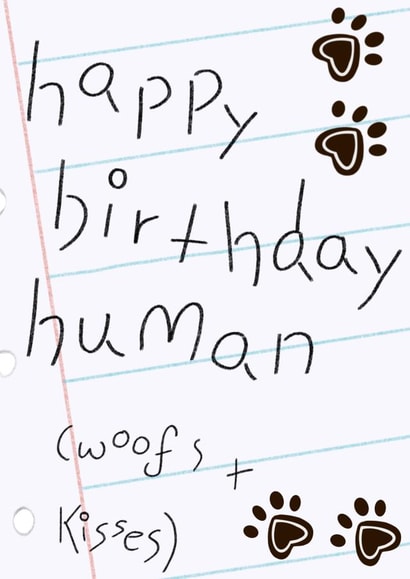 happy
birthday
human
(woofs +
Kisses)